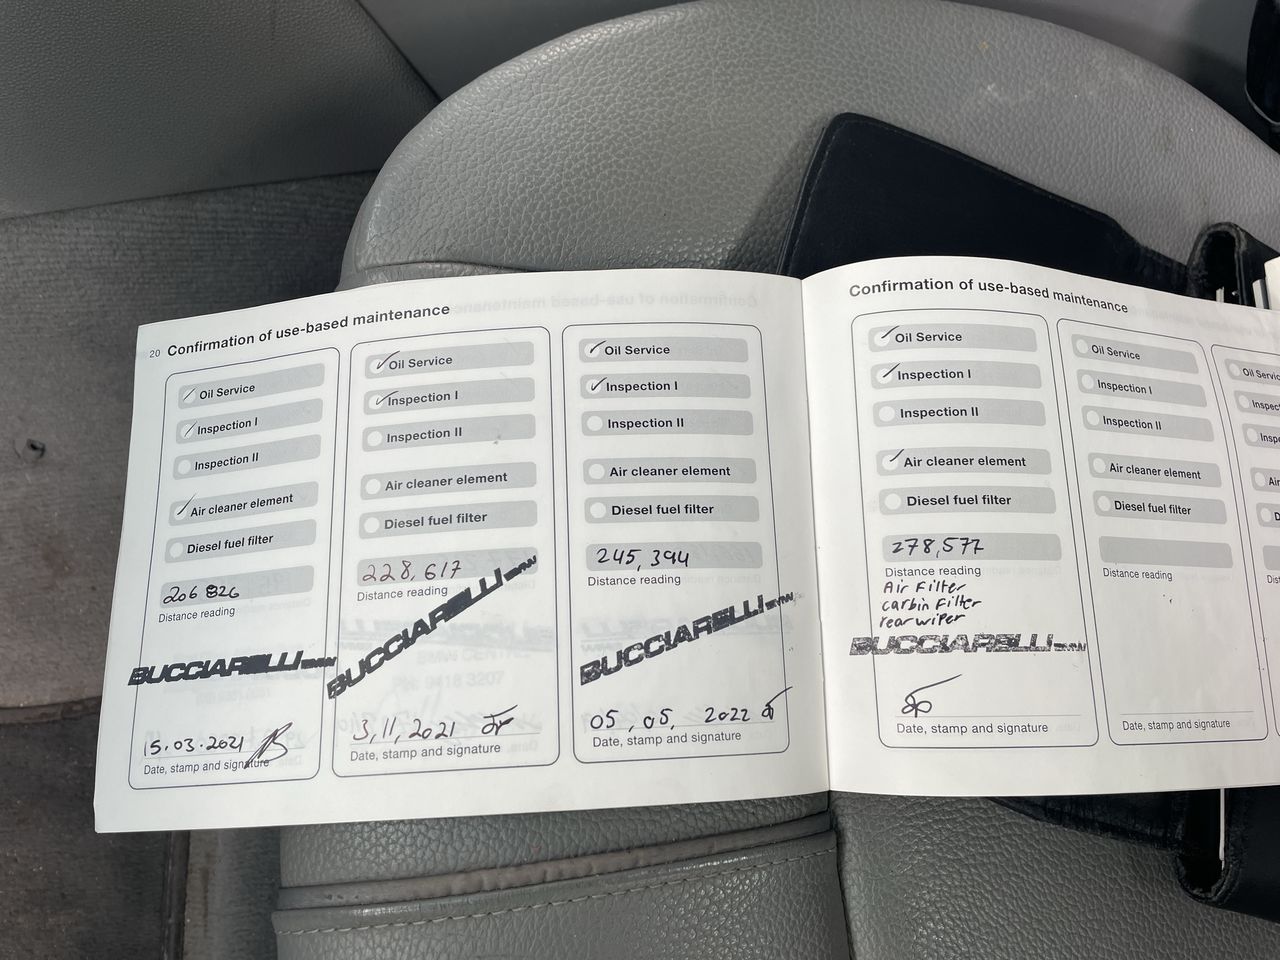 20 Confirmation of use-based maintenance
Oil Service
Inspection I
Inspection II
Air cleaner element
Diesel fuel filter
206 826
Distance reading
BUCCIARELLI BMW
15.03.2021
Date, stamp and signature
Oil Service
Inspection I
Inspection II
Air cleaner element
Diesel fuel filter
228,617
Distance reading
BUCCIARELLI BMW
3,11,2021
Date, stamp and signature
Oil Service
Inspection I
Inspection II
Air cleaner element
Diesel fuel filter
245,394
Distance reading
BUCCIARELLI BMW
05,05, 2022
Date, stamp and signature
Confirmation of use-based maintenance
Oil Service
Inspection I
Inspection II
Air cleaner element
Diesel fuel filter
278,577
Distance reading
Air Filter
carbin Filter
rear wiper
BUCCIARELLI BMW
Date, stamp and signature
Oil Service
Inspection I
Inspection II
Air cleaner element
Diesel fuel filter
Distance reading
Date, stamp and signature
Oil
Air